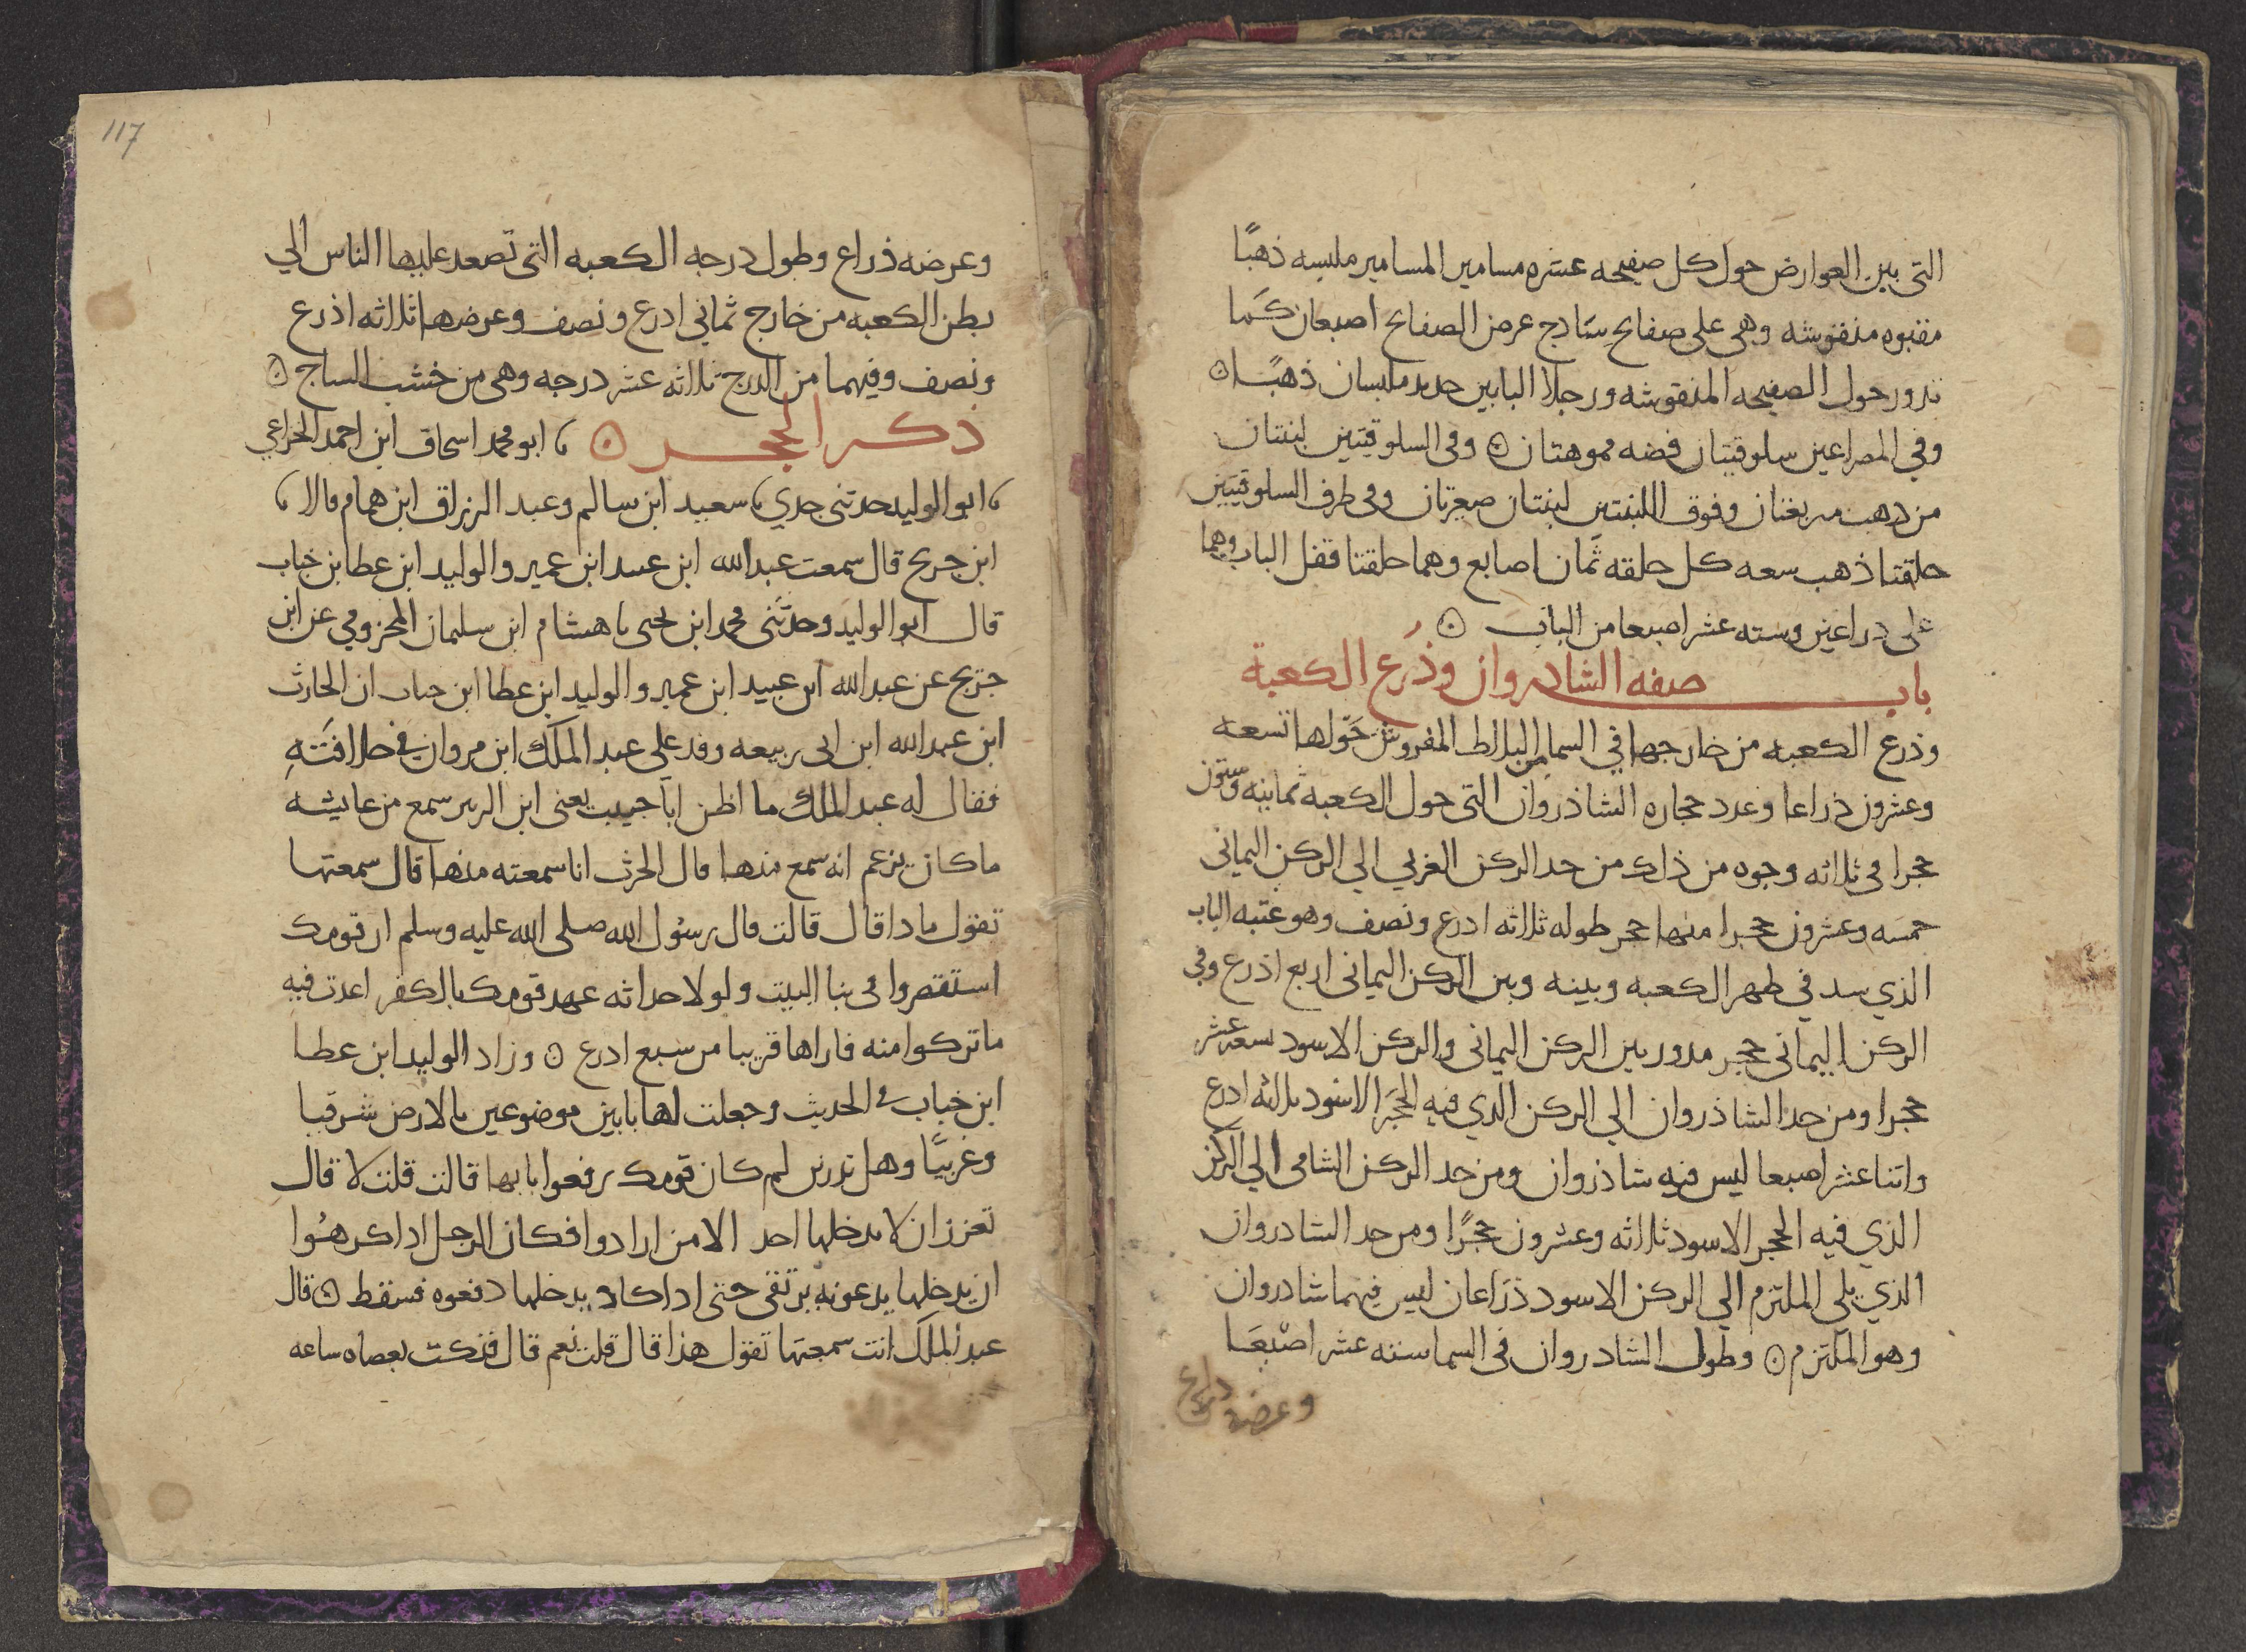 التى بين العوارض حول كل صفيحه عشره مسامير المسامير ملبسه ذهبًا
مقبوه منقوشه وهى على صفايح سَاذج عرض الصفايح اصبعان كَما
تدور حول الصفيحه المنقوشه ورجلا البابين حديد ملبسان ذهبًا ۞
وفي المصراعين سلوقيتان فضه مموهتان ۞ وفى السلوقيتين لبنتان
من دهب مربعتان وفوق اللبنتين لبنتان صغيرتان وفى طرف السلوقيتين
حلقتا ذهب سعه كل حلقه ثَمان اصابع وهما حلقتا قفل الباب وهما
على دراعين وسته عشر اصبعا من الباب ۞
باب صفه الشادروان وذُرع الكعبة
وذرع الكعبه من خارجها في السما من البلاط المفروش حَولها تسعه
وعشرون ذراعا وعدد حجاره الشاذروان التى حول الكعبه ثمانيه وستون
حجرا فى ثلاثه وجوه من ذلك من حد الركن الغربي الي الركن اليمانى
خمسه وعشرون حجرا منها حجر طوله ثلاثه ادرع ونصف وهو عتبه الباب
الذي سد في ظهر الكعبه وبينه وبين الركن اليمانى اربع اذرع وفي
الركن اليمانى حجر مدور بين الركن اليمانى والركن الاسود تسعه عشر
حجرا ومن حد الشاذروان الي الركن الذي فيه الحَجَر الاسود ثلاثه ادرع
واثنا عشر اصبعا ليس فيه شاذروان ومن حد الركن الشامى الي الركن
الذي فيه الحجر الاسود ثلاثه وعشرون حجرًا ومن حد الشادروان
الذي يلى الملتزم الي الركن الاسود ذرَاعان ليس فيهما شادروان
وهو الملتزم ۞ وطول الشادروان فى السما سته عشر اصْبعَا
وعرضه ذراع
117
وعرضه ذراع وطول درجه الكعبه التى تصعد عليها الناس الي
بطن الكعبه من خارج ثمانى ادرع ونصف وعرضها ثلاثه اذرع
ونصف وفيهما من الدرج ثلاثه عشر درجه وهى من خشب الساج ۞
ذكر الحجر ۞ نا ابو محمد اسحاق ابن احمد الخزاعي
نا ابو الوليد حدثنى جدي نا سعيد ابن سالم وعبد الرزاق ابن همام قالا نا
ابن جريج قال سمعت عبد الله ابن عبيد ابن عمير والوليد ابن عطا بن خباب
قال ابو الوليد وحدثنى محمد ابن يحيى نا هشام ابن سليمان المخزومي عن ابن
جريج عن عبد الله ابن عبيد ابن عمير والوليد ابن عطا ابن خباب ان الحارث
ابن عبد الله ابن ابى ربيعه وفد على عبد الملك ابن مروان في خلافَتهِ
فقال له عبد الملك ما اظن ابا خبيب يعنى ابن الزبير سمع من عايشه
ما كان يزعم انه سمع منها قال الحرث انا سمعته منها قال سمعتها
تقول ماذا قال قالت قال رسُول الله صلى الله عليه وسلم ان قومك
استقصروا فى بنا البيت ولولا حداثه عهد قومك بالكفر اعدت فيه
ما تركوا منه فاراها قريبا من سبع ادرع ۞ وزاد الوليد ابن عطا
ابن خباب في الحديث وجعلت لها بابين موضوعين بالارض شرقيا
وغربيًا وهل تدرين لم كان قومك رفعوا بابها قالت قلت لا قال
تعززا ان لا يدخلها احد الا من ارادوا فكان الرجل اذا كرهُوا
ان يدخلها يدعونه يرتقى حتى اذا كاد يدخلها دفعوه فسقط ۞ قال
عبد الملك انت سمعتها تقول هذا قال قلت نعم قال فنكت بعصاه ساعه